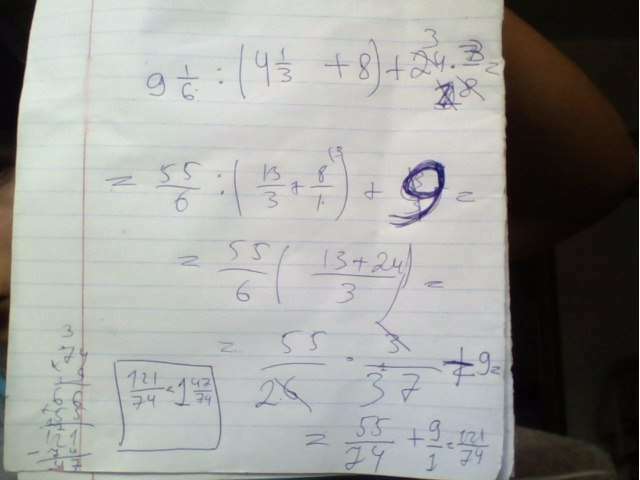 9 1/6 : (4 1/3 + 8) + 24 · 3/8 =
= 55/6 : (13/3 + 8/1) + 9 =
= 55/6 ( 13+24/3 ) =
= 55/26 · 3/37 + 9 =
= 55/74 + 9/1 = 121/74
121/74 = 1 47/74